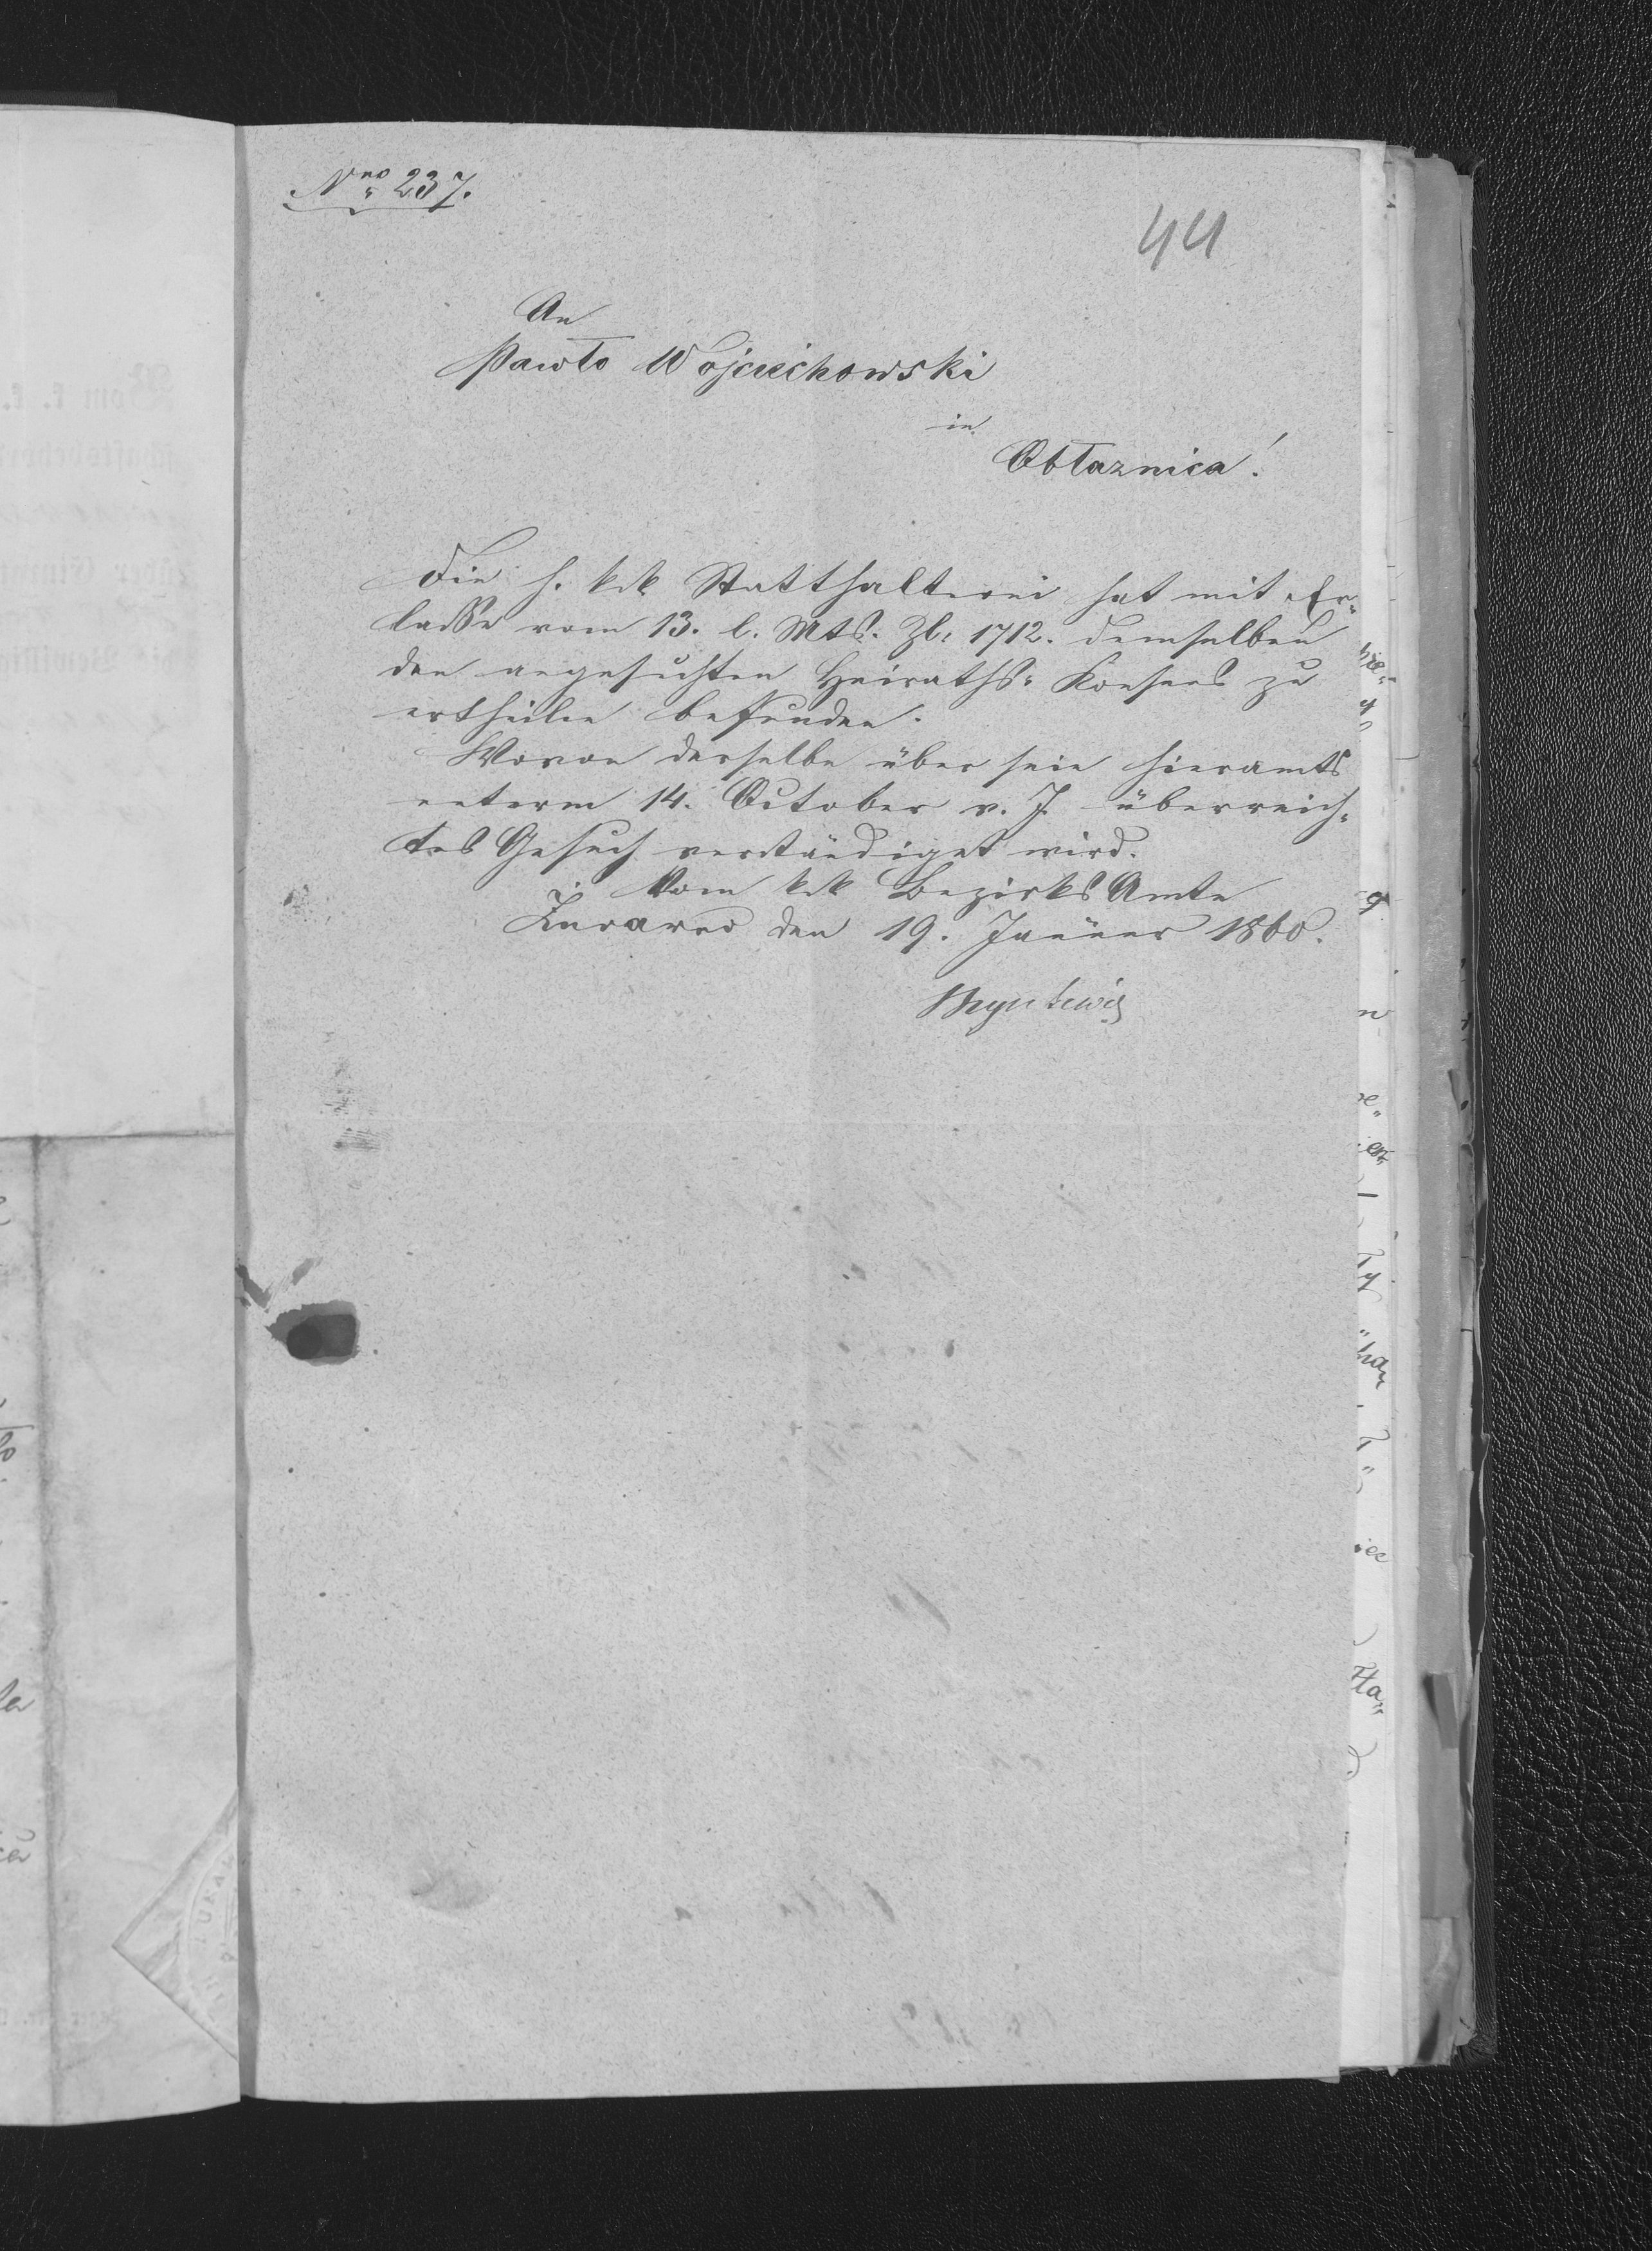 Nro 237.
44
An
Pawło Wojciechowski
in
Obłaznica!
Die h. k k Statthalterei hat mit Er-
lasse vom 13. l. Mts. Zl. 1712. demselben
den angesuchten Heiraths-Konsens zu
ertheilen befunden.
Wovon derselbe über sein hieramts
unterm 14. October v. J. überreich-
tes Gesuch verständiget wird.
Vom k k Bezirks Amte
Żurawno den 19. Jänner 1860.